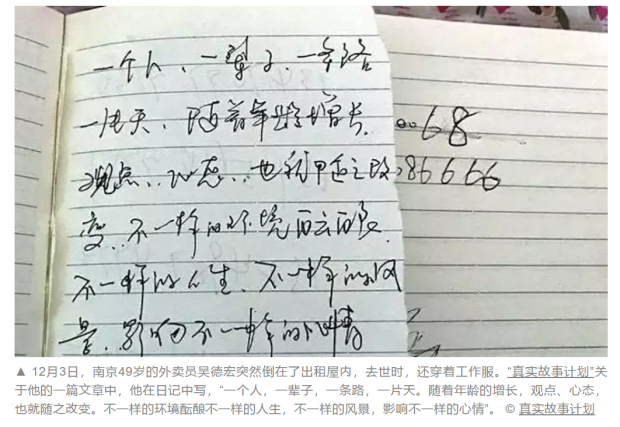 一个人、一辈子、一条路
一片天、随着年龄增长、
68
观点、心态、也就随之改
86666
变、不一样的环境酝酿
不一样的人生、不一样的风
景、影响不一样的心情
▲ 12月3日，南京49岁的外卖员吴德宏突然倒在了出租屋内，去世时，还穿着工作服。“真实故事计划”关
于他的一篇文章中，他在日记中写，“一个人，一辈子，一条路，一片天。随着年龄的增长，观点、心态，
也就随之改变。不一样的环境酝酿不一样的人生，不一样的风景，影响不一样的心情”。 © 真实故事计划